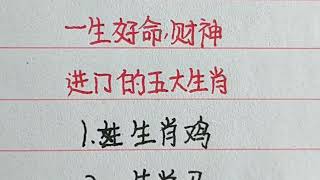 一生好命,财神
进门的五大生肖
1.生肖鸡
生肖